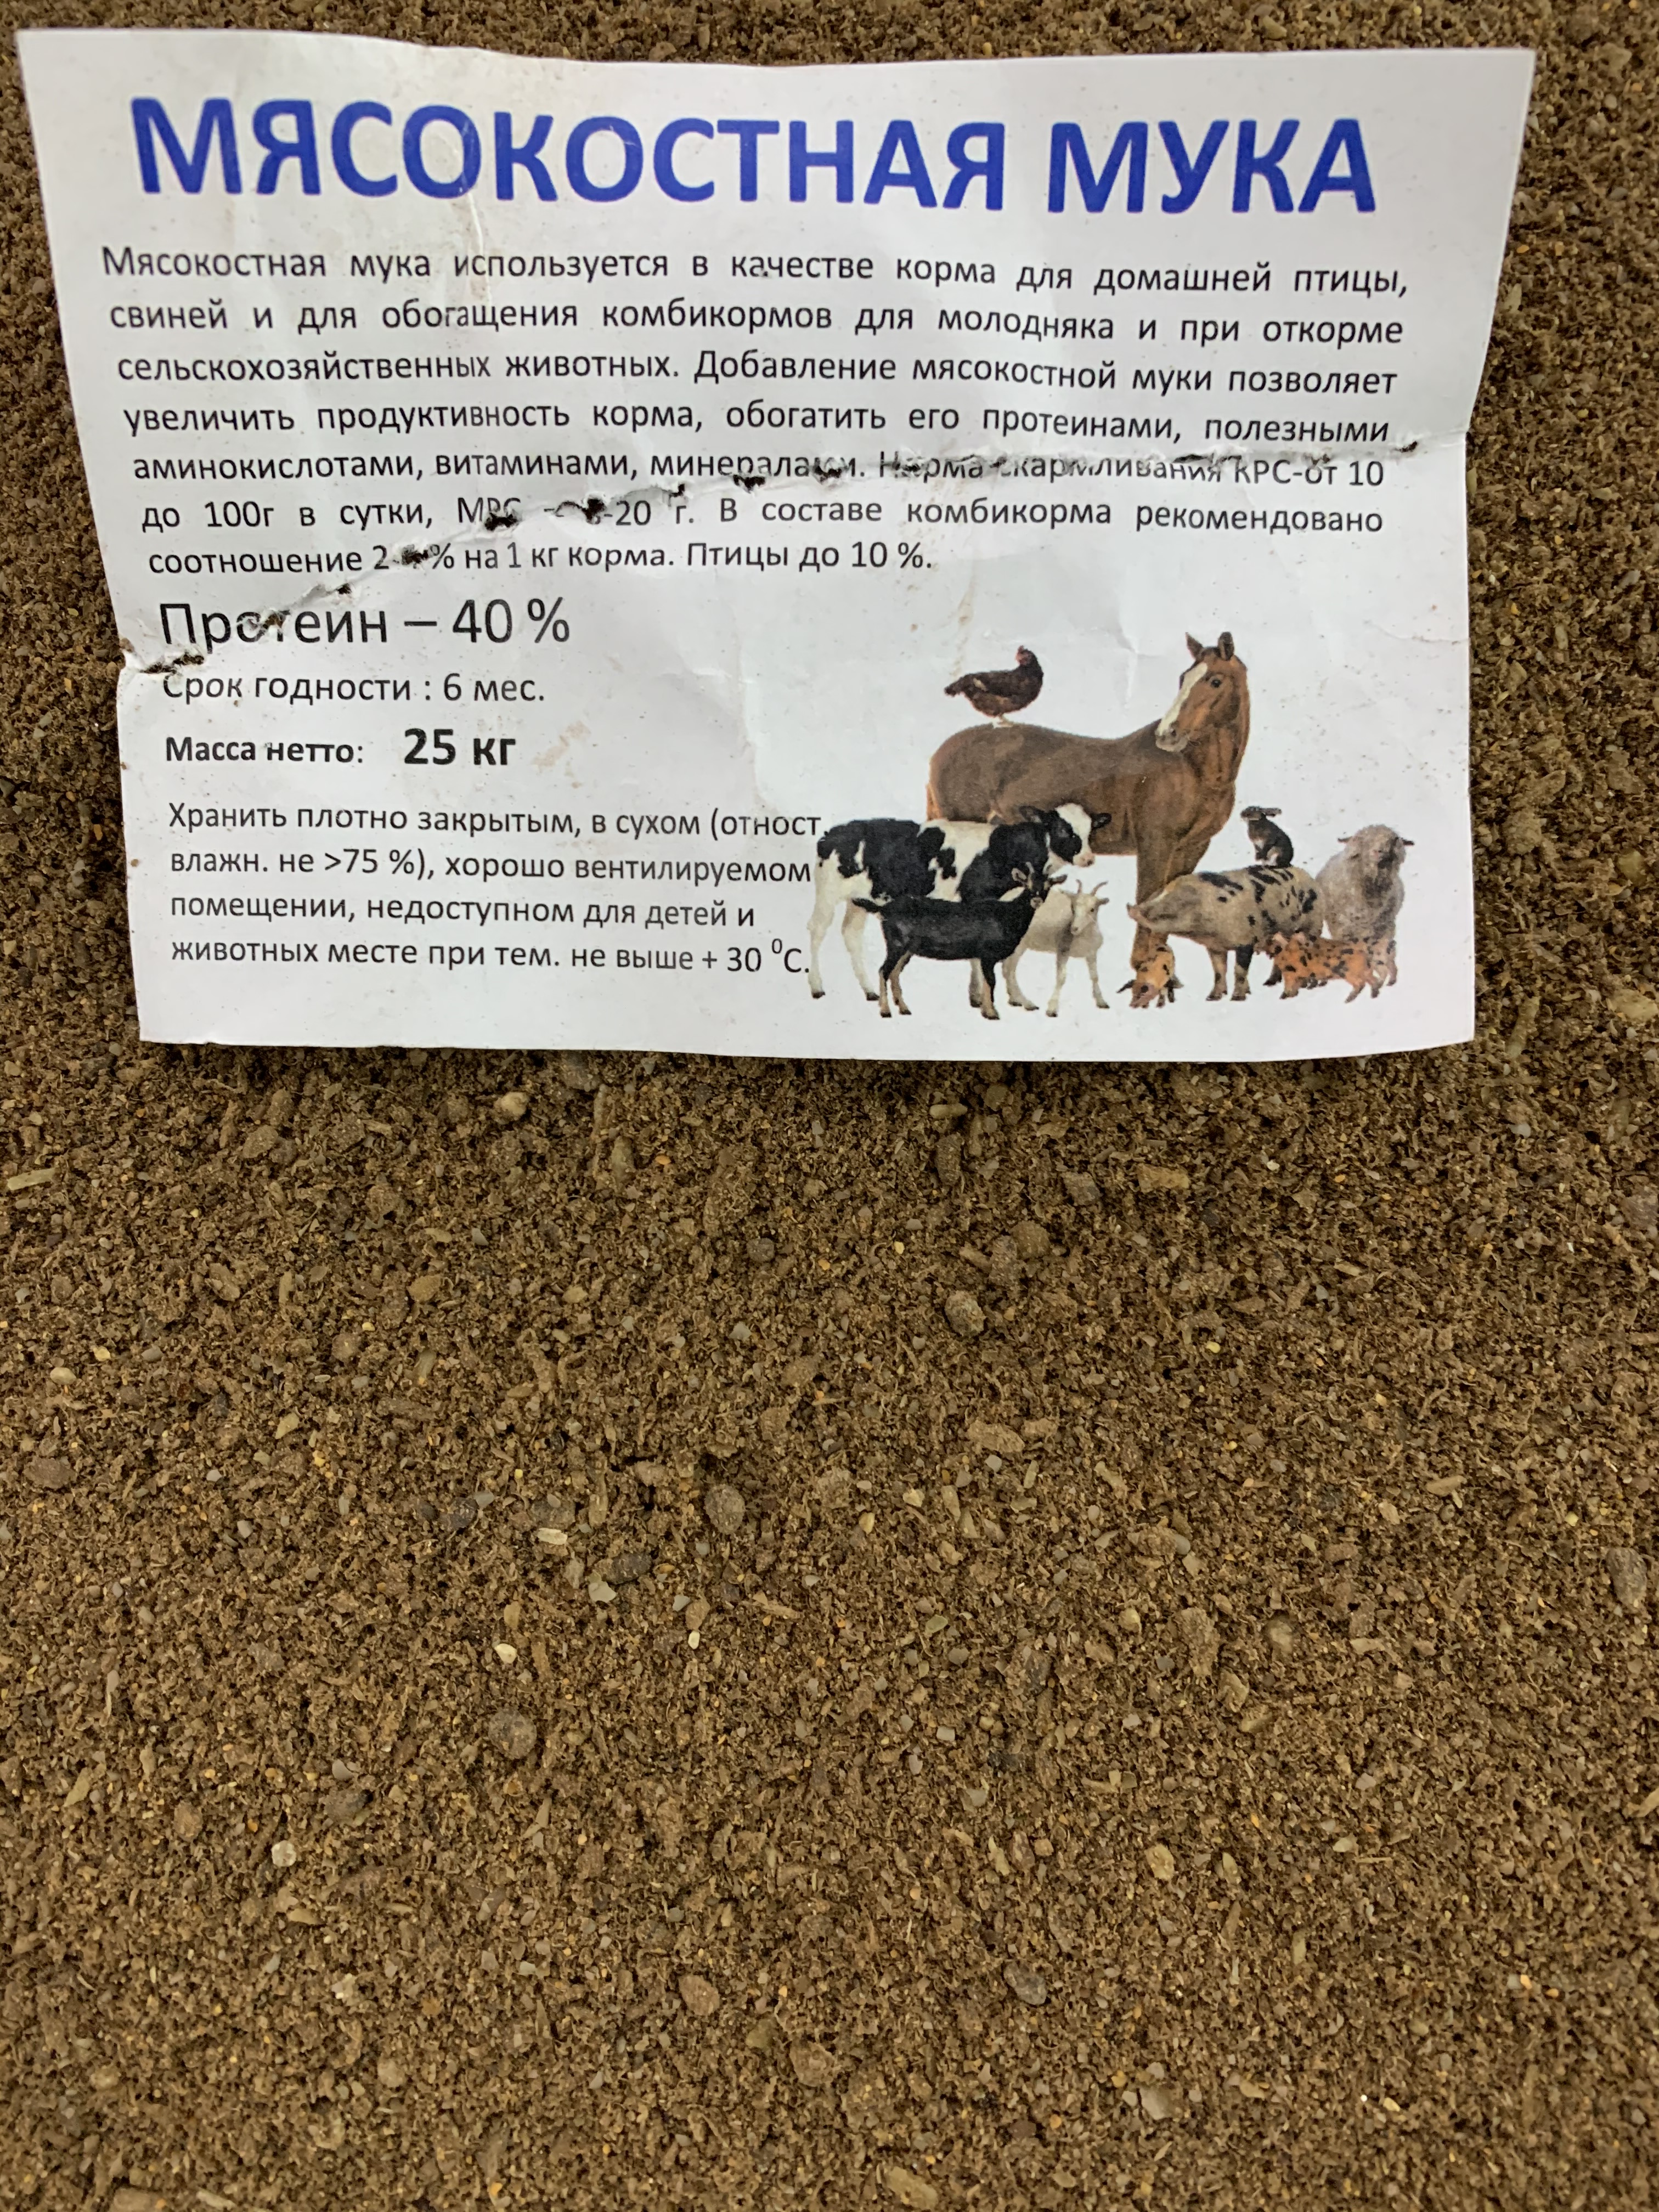 МЯСОКОСТНАЯ МУКА
Мясокостная мука используется в качестве корма для домашней птицы,
свиней и для обогащения комбикормов для молодняка и при откорме
сельскохозяйственных животных. Добавление мясокостной муки позволяет
увеличить продуктивность корма, обогатить его протеинами, полезными
аминокислотами, витаминами, минералами. Норма скармливания КРС-от 10
до 100г в сутки, МРС -20 г. В составе комбикорма рекомендовано
соотношение % на 1 кг корма. Птицы до 10 %.
Протеин – 40 %
Срок годности : 6 мес.
Масса нетто: 25 кг
Хранить плотно закрытым, в сухом (отност.
влажн. не >75 %), хорошо вентилируемом
помещении, недоступном для детей и
животных месте при тем. не выше + 30 ⁰С.